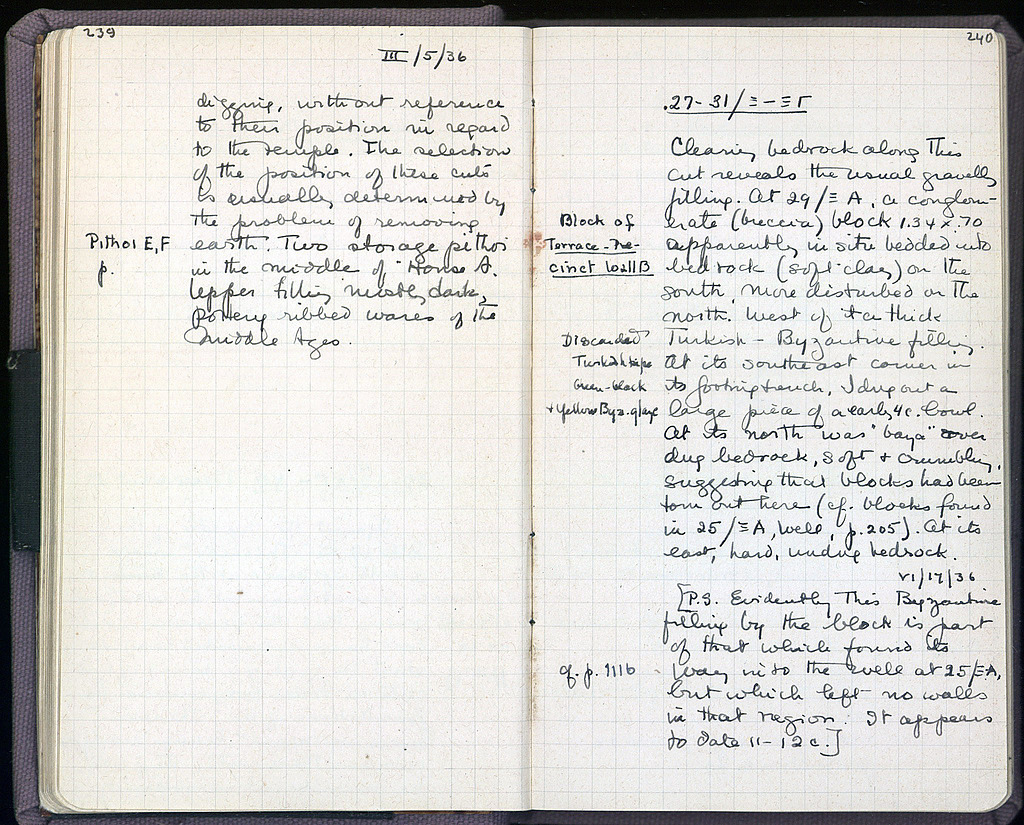 239
III/5/36
digging, without reference
to their position in regard
to the temple. The selection
of the position of these cuts
is usually determined by
the problem of removing
Pithoi E, F
earth. Two storage pithoi
p.
in the middle of House A.
Upper filling mostly dark,
Potery ribbed wares of the
Middle Ages.
240
.27-31/Ξ-ΞΓ
Clearing bedrock along This
cut reveals the usual gravelly
filling. At 29/ΞA, a conglom-
Block of
erate (breccia) block 1.34 x .70
Terrace-Pe-
apparently in situ bedded into
cinct Wall B
bedrock (soft clay) on the
south, more disturbed on The
north. West of it a thick
Discarded
Turkish-Byzantine filling.
Turkish
At its southeast corner in
Green-black
its footing trench, I dug out a
+ Yellow Byz. glaze
large piece of a early 4c. bowl.
At its north was "baya" over
dug bedrock, soft + crumbling,
suggesting that blocks had been
torn out here (cf. blocks found
in 25/ΞA, well, p.205). At its
east, hard, undug bedrock.
VI/17/36
[P.S. Evidently This Byzantine
filling by the block is part
of that which found its
cf. p. 1116
way into the well at 25/ΞA,
but which left no walls
in that region. It appears
to date 11-12 c.]